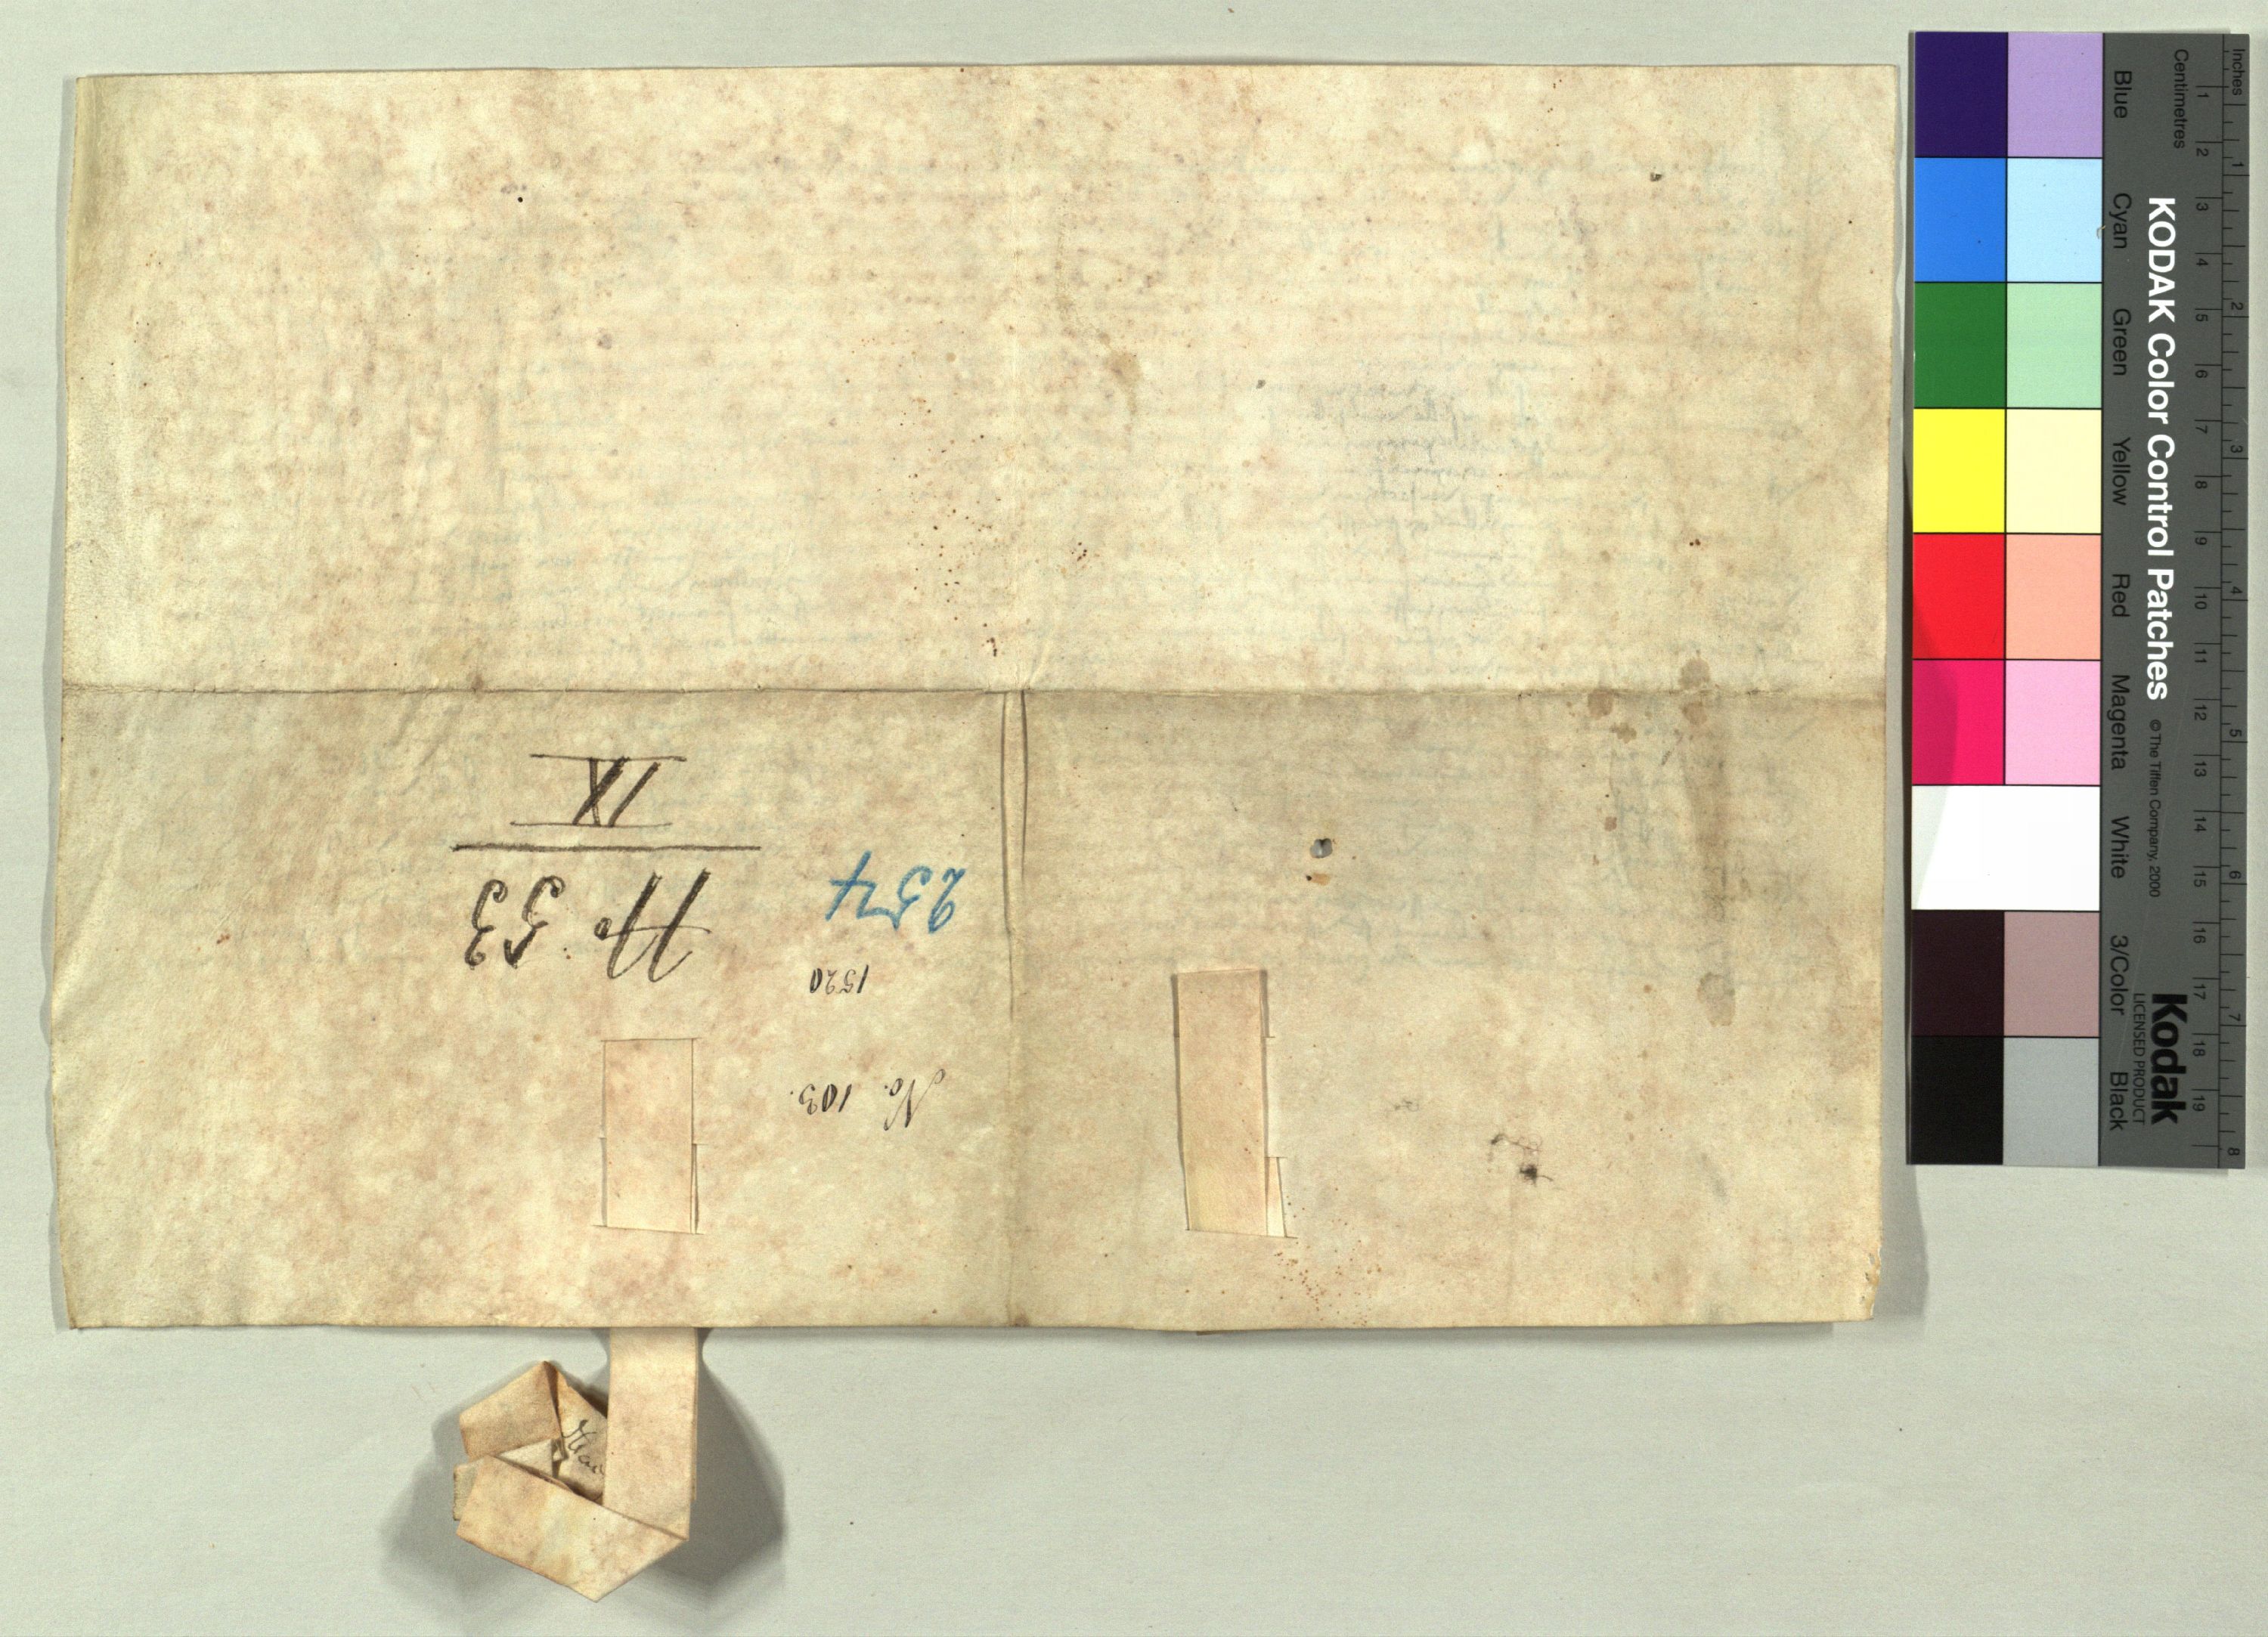 No. 103.
1520
254
No 53
IX
Inches
Centimetres
1 2 3 4 5 6 7 8
1 2 3 4 5 6 7 8 9 10 11 12 13 14 15 16 17 18 19
KODAK Color Control Patches © The Tiffen Company, 2000 Kodak
LICENSED PRODUCT
Blue Cyan Green Yellow Red Magenta White 3/Color Black